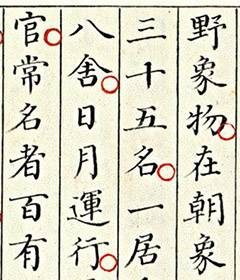 野象物在朝象
三十五名一居
八舍日月運行
官常名者百有